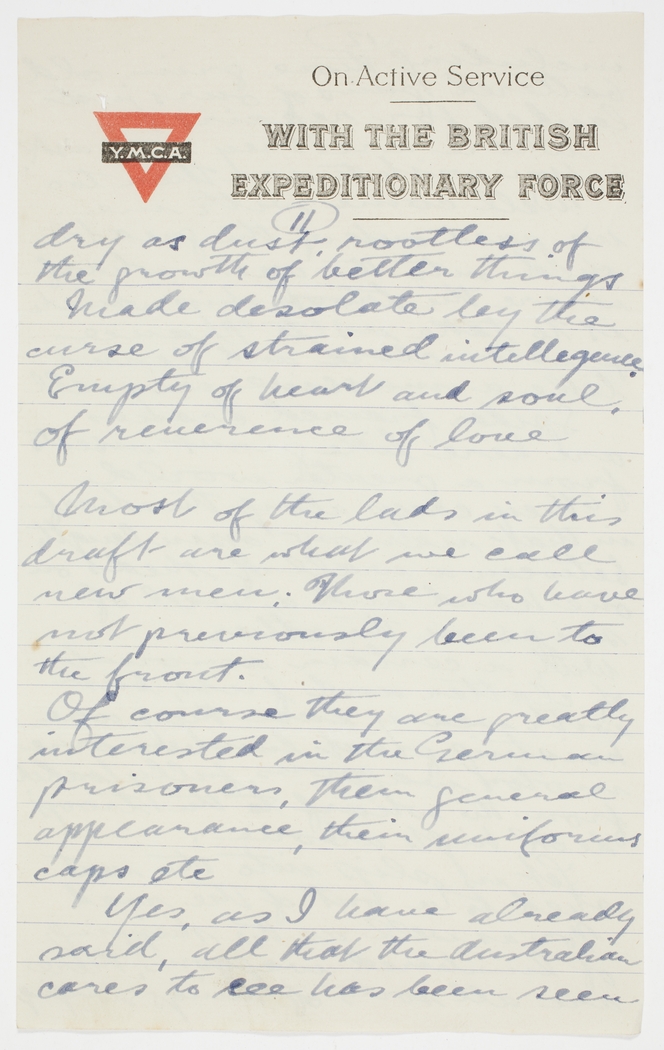 On Active Service
Y.M.C.A.
WITH THE BRITISH
EXPEDITIONARY FORCE
11
dry as dust, rootless of
the growth of better things
Made desolate by the
curse of strained intellegence.
Empty of heart and soul,
of reverence of love
Most of the lads in this
draft are what we call
new men. Those who have
not previously been to
the front.
Of course they are greatly
interested in the German
prisoners, them general
appearance, their uniforms
caps etc
Yes, as I have already
said, all that the Australian
cares to see has been seen